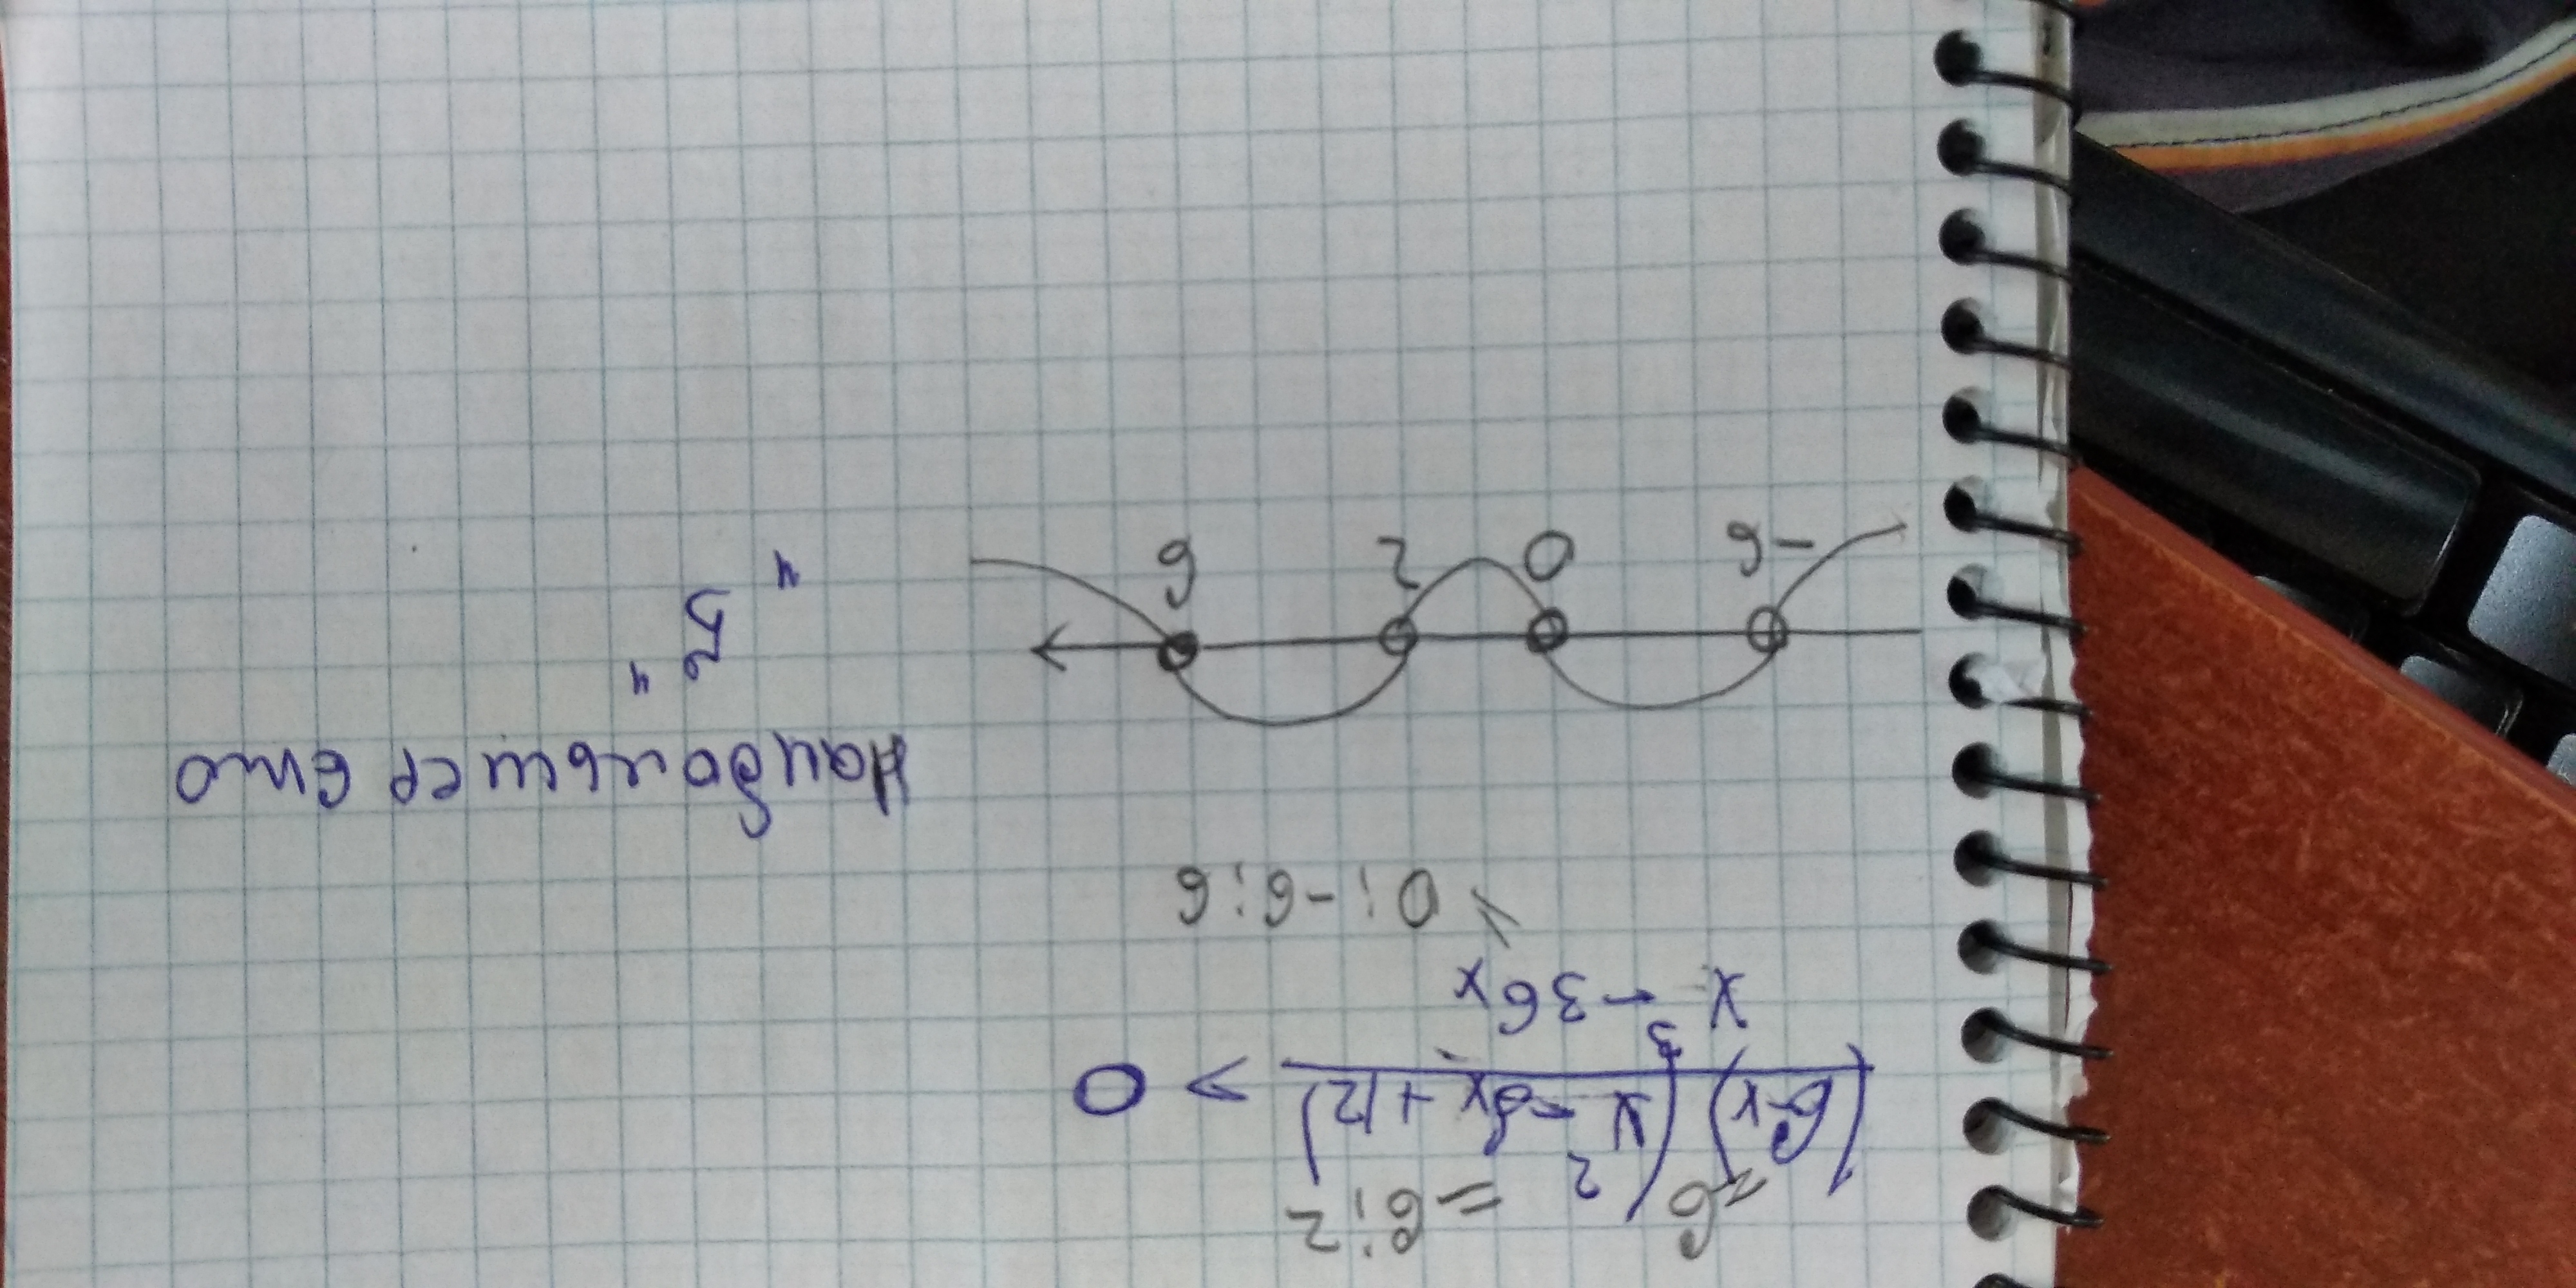 =6 =6;2
(6-x)(x²-8x+12)
> 0
x³-36x
0; -6; 6
Наибольшее
"5"
-6 0 2 6